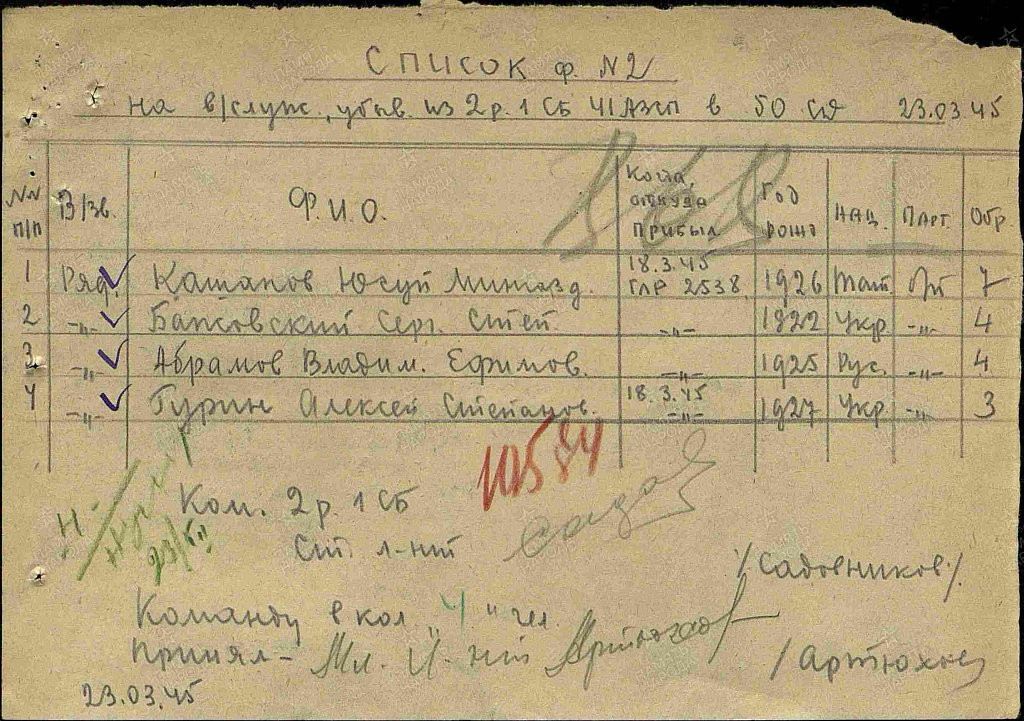 Список ф. №2
на в/служ., убыв. из 2 р. 1 СБ 41 АЗСП в 50 сд 23.03.45
№№ п/п В/зв. Ф.И.О. Когда, откуда прибыл Год рожд НАЦ. ПАРТ. Обр
1 Ряд. Юсуп 18.3.45 ГЛР 2538 1926 Тат 7
2 -"- Серг. Степ. -"- 1922 Укр -"- 4
3 -"- Абрамов Владим. Ефимов. -"- 1925 Рус. -"- 4
4 -"- Гурин Алексей Степанов. 18.3.45 -"- 1927 Укр -"- 3
Ком. 2 р. 1 СБ
Ст л-нт
/Садовников/.
Команду в кол. "4" чел.
Принял - Мл. л-нт
/Артюхов/
23.03.45